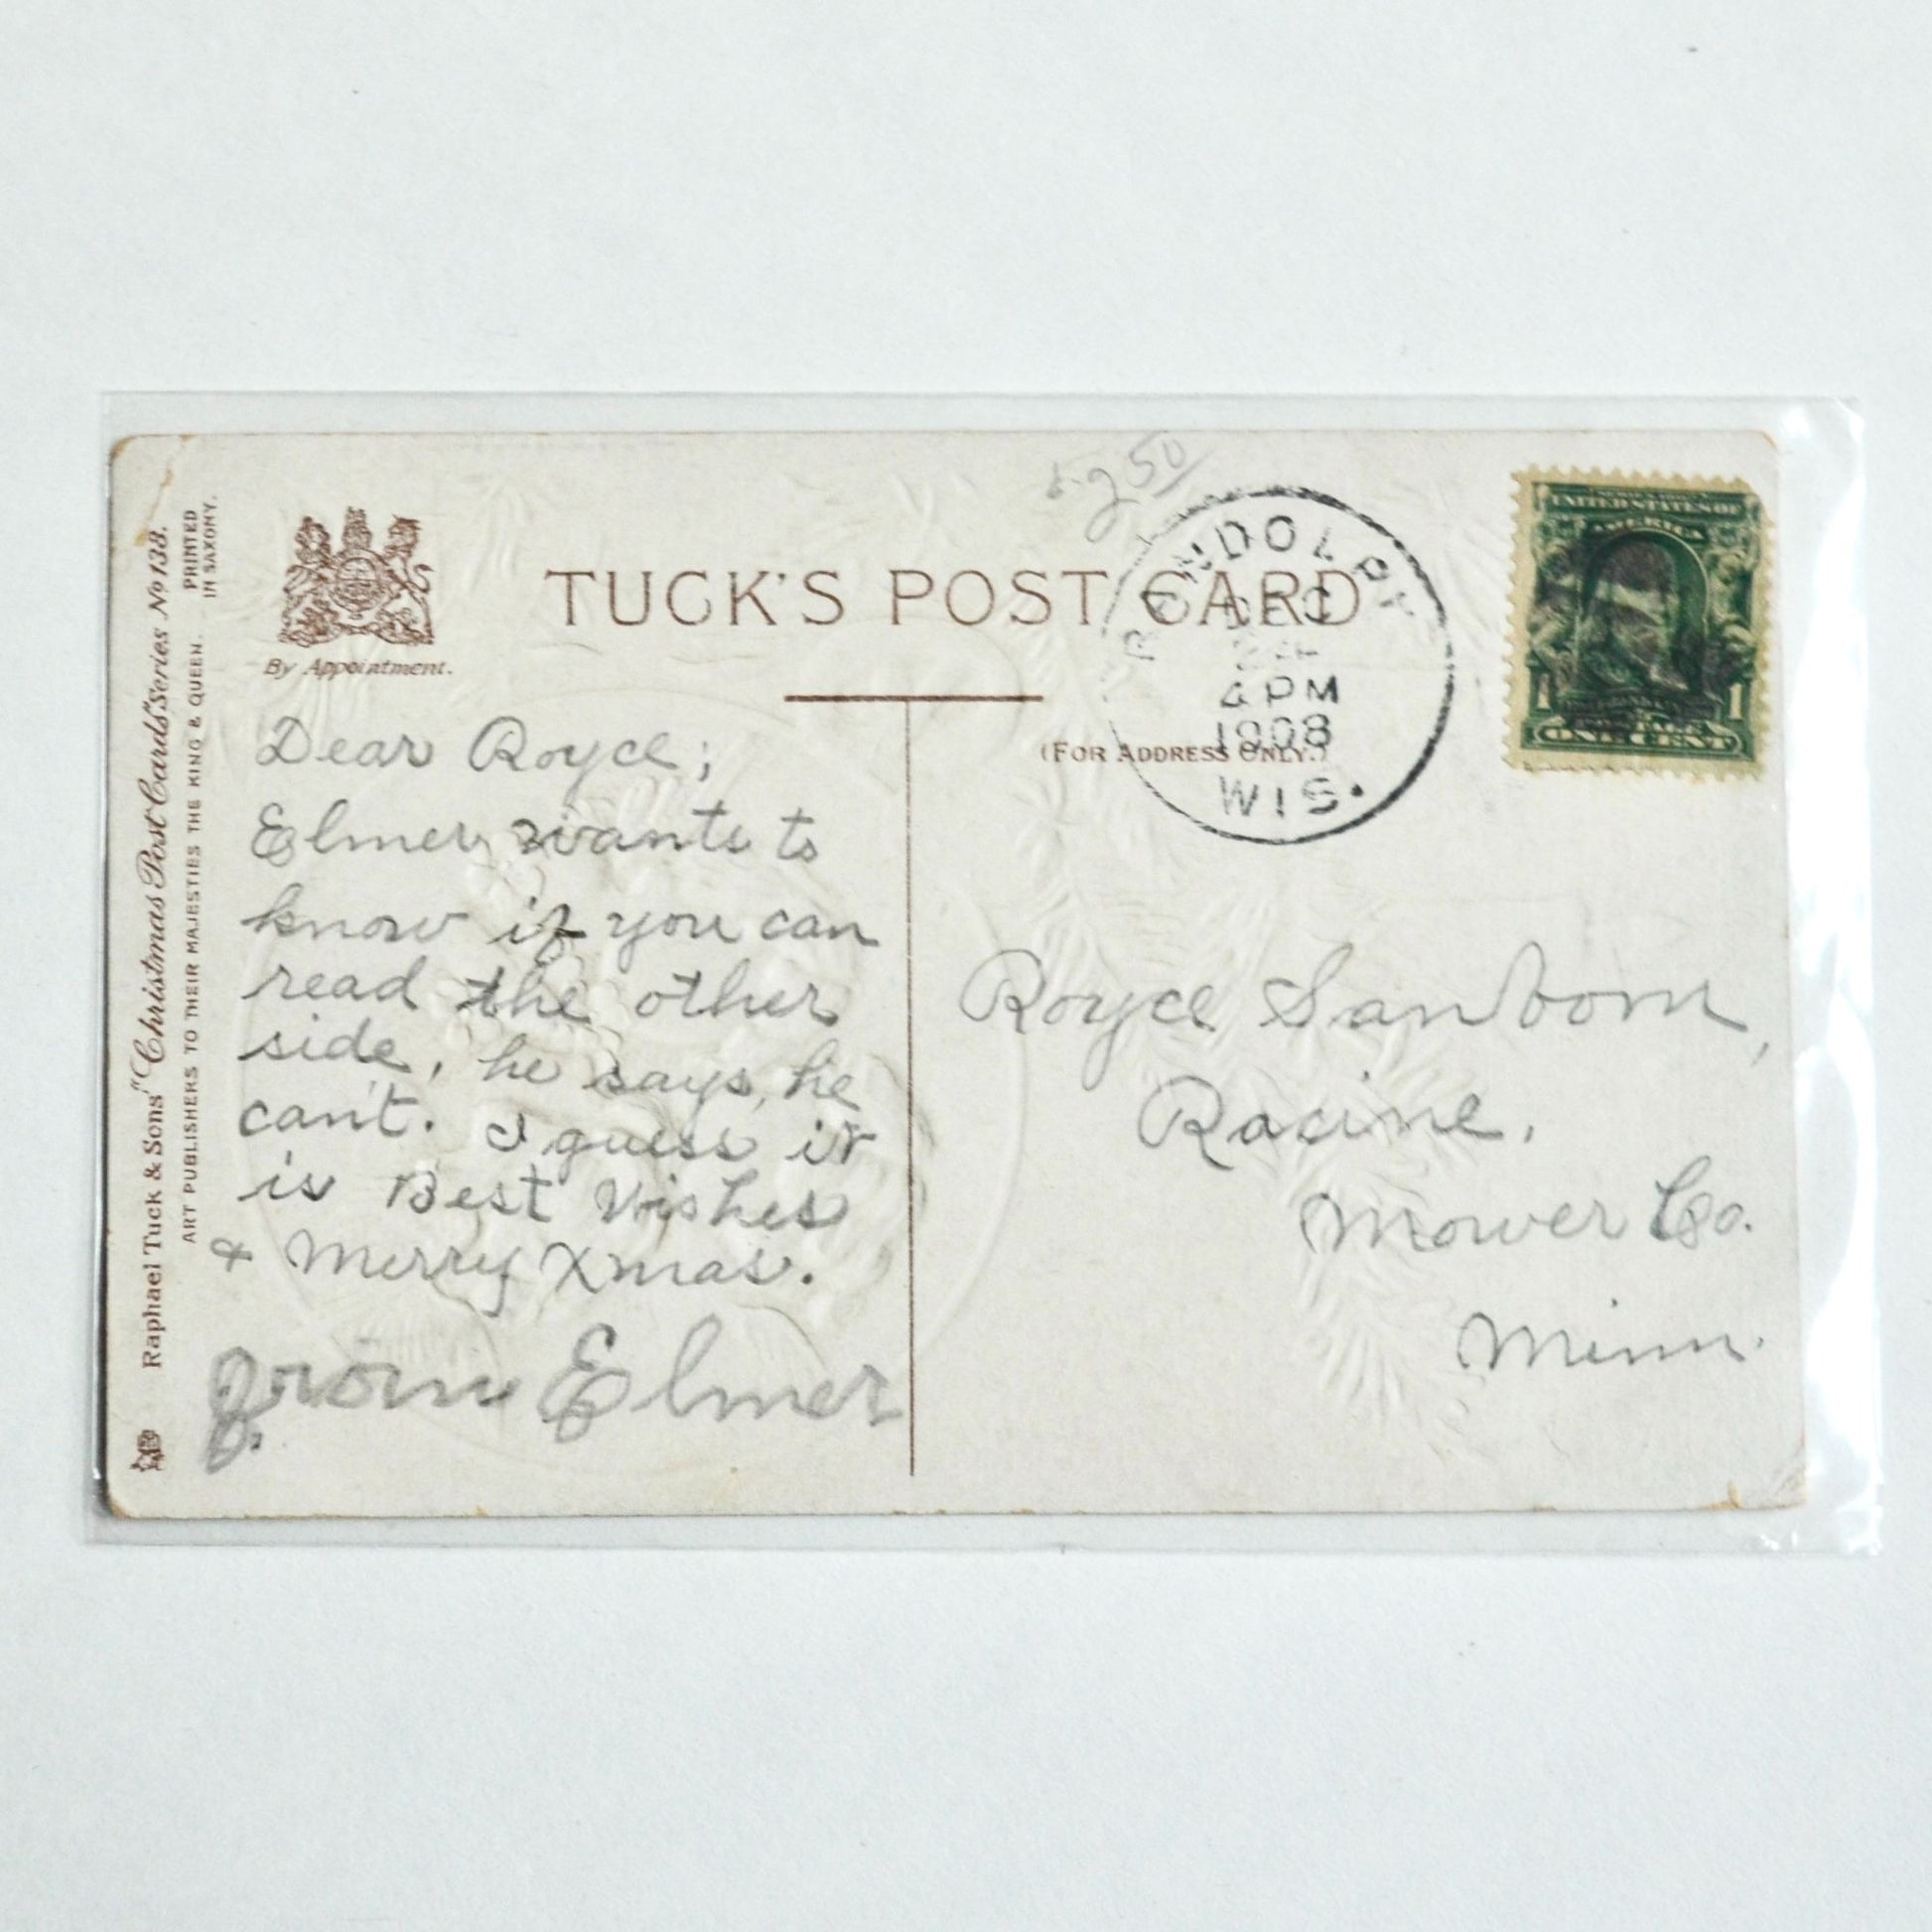 Raphael Tuck & Sons' "Christmas Post Cards" Series No 138.
ART PUBLISHERS TO THEIR MAJESTIES THE KING & QUEEN.
PRINTED
IN SAXONY.
By Appointment.
TUCK'S POST CARD
(FOR ADDRESS ONLY.)
2 50
RANDOLPH
DEC
4 PM
1908
WIS.
UNITED STATES OF
AMERICA
1 1
ONE CENT
Dear Royce;
Elmer wants to
know if you can
read the other
side, he says he
can't. I guess it
is Best Wishes
& Merry Xmas.
From Elmer
Royce Sanborn,
Racine,
Mower Co.
Minn.